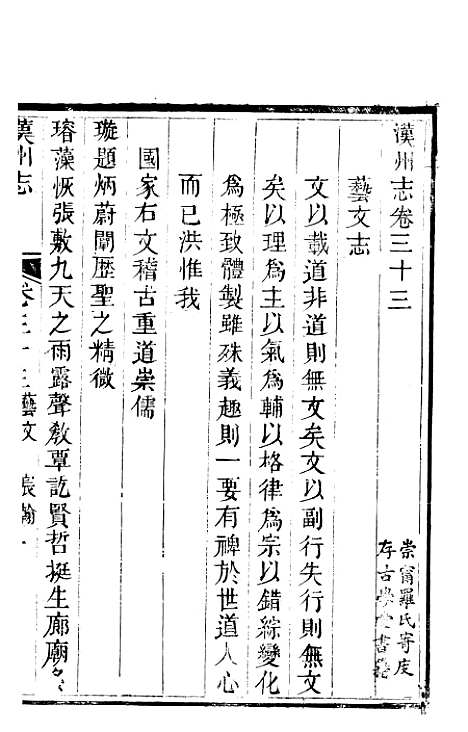 漢州志卷三十三
崇甯羅氏寄度
存古學堂書籍
藝文志
文以載道非道則無文矣文以副行失行則無文
矣以理為主以氣為輔以格律為宗以錯綜變化
為極致體製雖殊義趣則一要有裨於世道人心
而已洪惟我
國家右文稽古重道崇儒
璇題炳蔚闡歷聖之精微
瑢藻恢張敷九天之雨露聲敎覃訖賢哲挺生廊廟
漢州志
卷三十三藝文